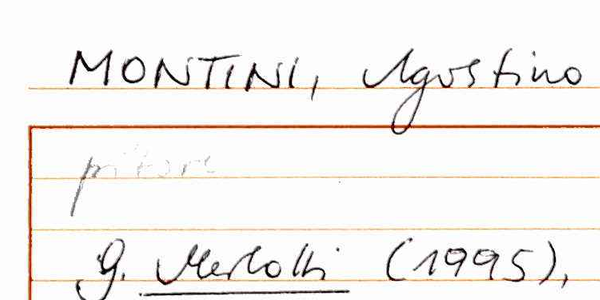 MONTINI, Agostino
pittore
G. Merlotti (1995),